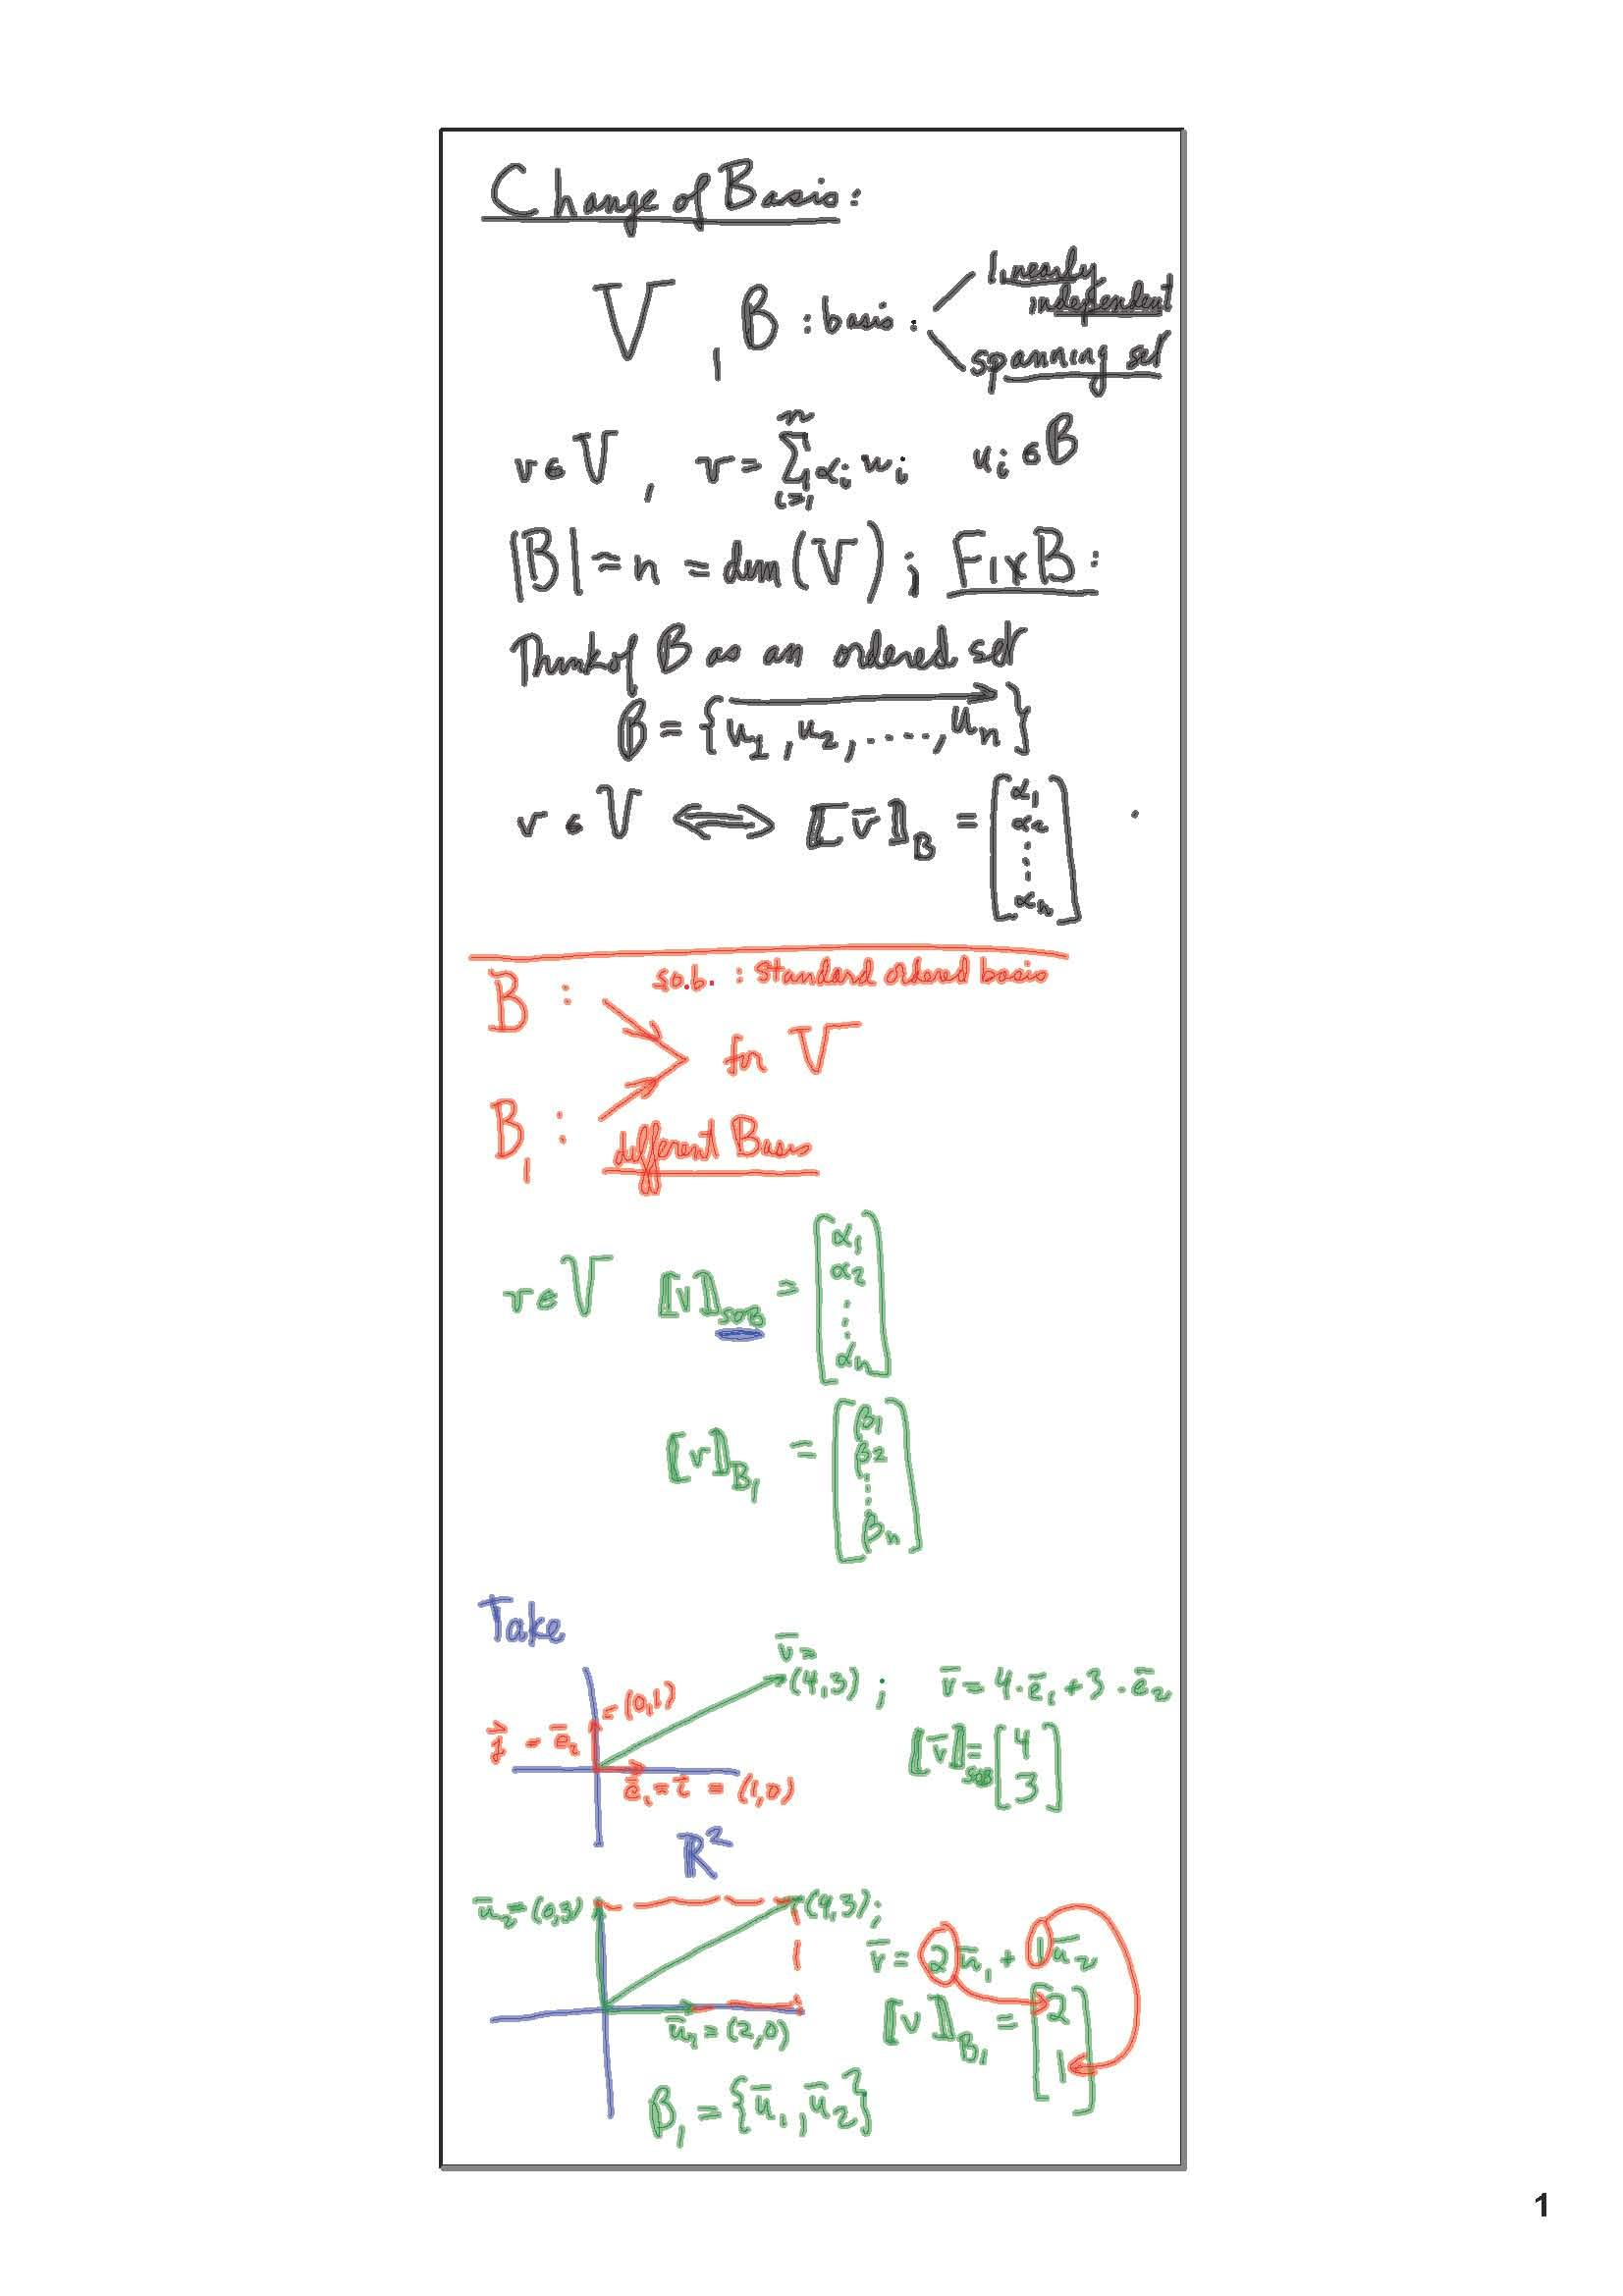 Change of Basis:
V , B : basis : linearly independent
spanning set
v ∈ V , v = ∑_{i=1}^{n} α_i u_i u_i ∈ B
|B| = n = dim(V) ; Fix B :
Think of B as an ordered set
B = {u_1, u_2, ...., u_n}
v ∈ V ⟺ [[v̄]]_B = [α_1 α_2 ⋮ α_n]
B : s.o.b. : standard ordered basis
for V
B_1 : different Basis
v ∈ V [[v]]_SOB = [α_1 α_2 ⋮ α_n]
[[v]]_B_1 = [β_1 β_2 ⋮ β_n]
Take
v̄ =
(4,3) ; v̄ = 4·ē_1 + 3·ē_2
= (0,1)
j⃗ = ē_2
[[v̄]]_SOB = [4 3]
ē_1 = i⃗ = (1,0)
R²
ū_2 = (0,3) (4,3);
v̄ = 2ū_1 + 1ū_2
ū_1 = (2,0) [[v]]_B_1 = [2 1]
B_1 = {ū_1, ū_2}
1